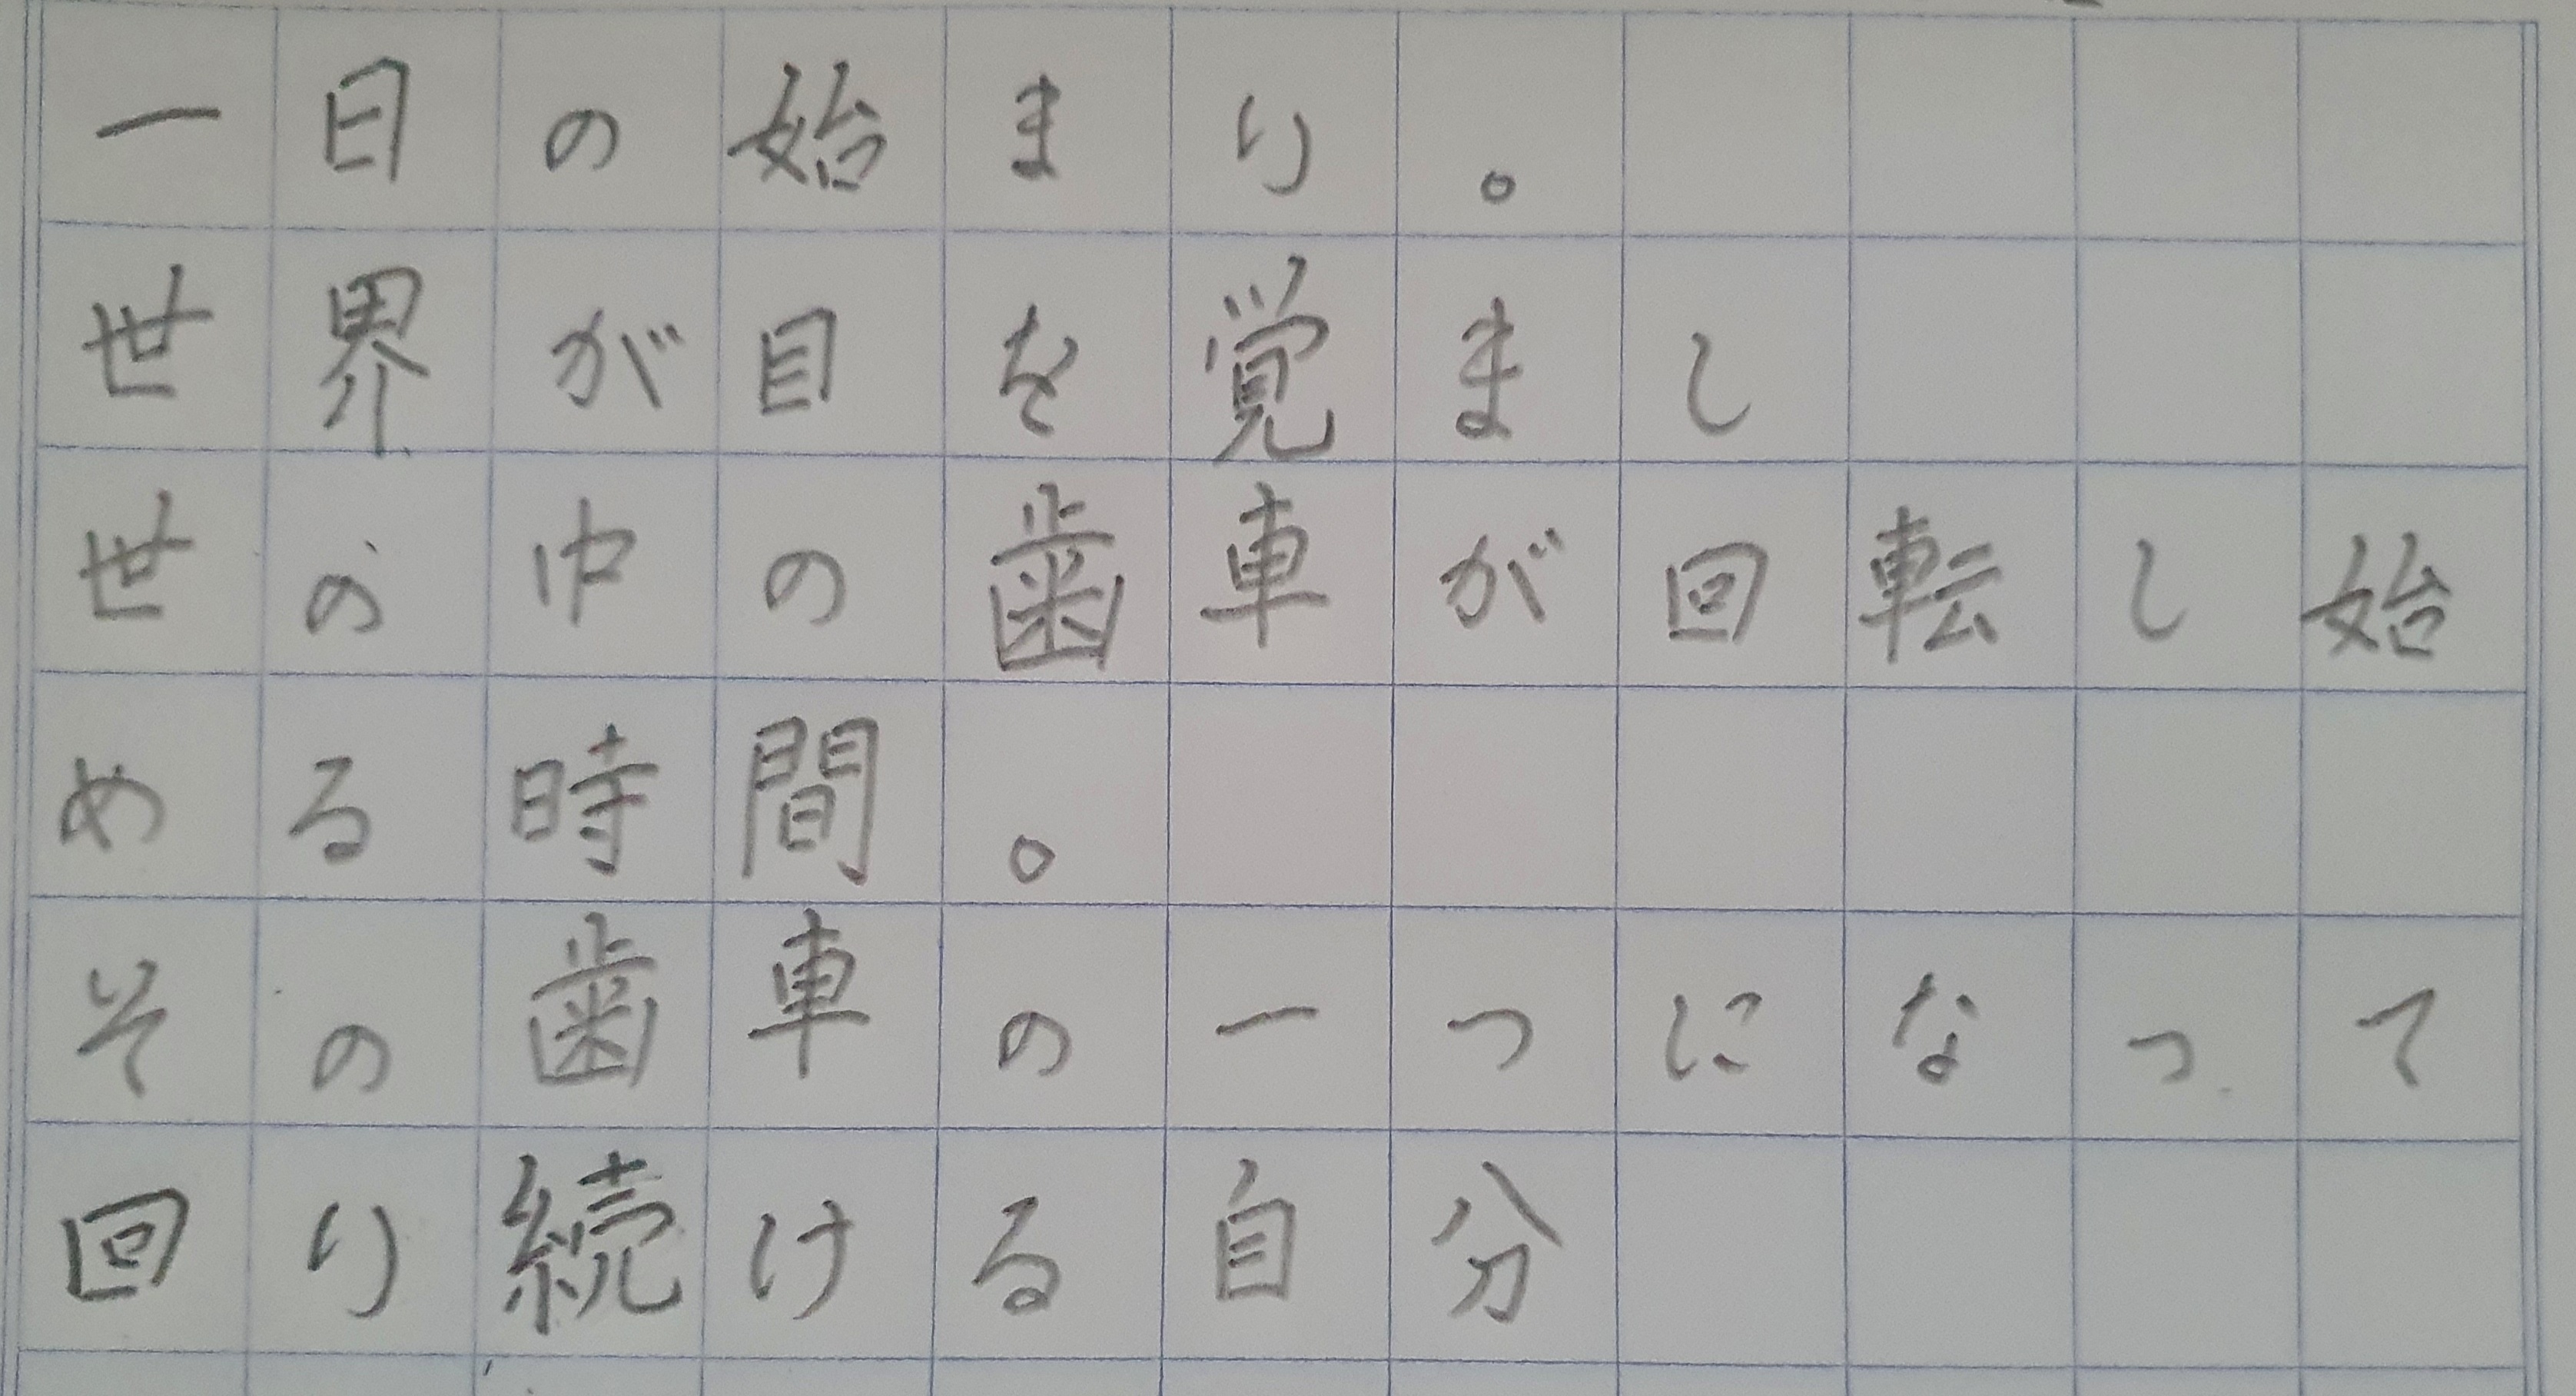 一日の始まり。
世界が目を覚まし
世の中の歯車が回転し始
める時間。
その歯車の一つになって
回り続ける自分